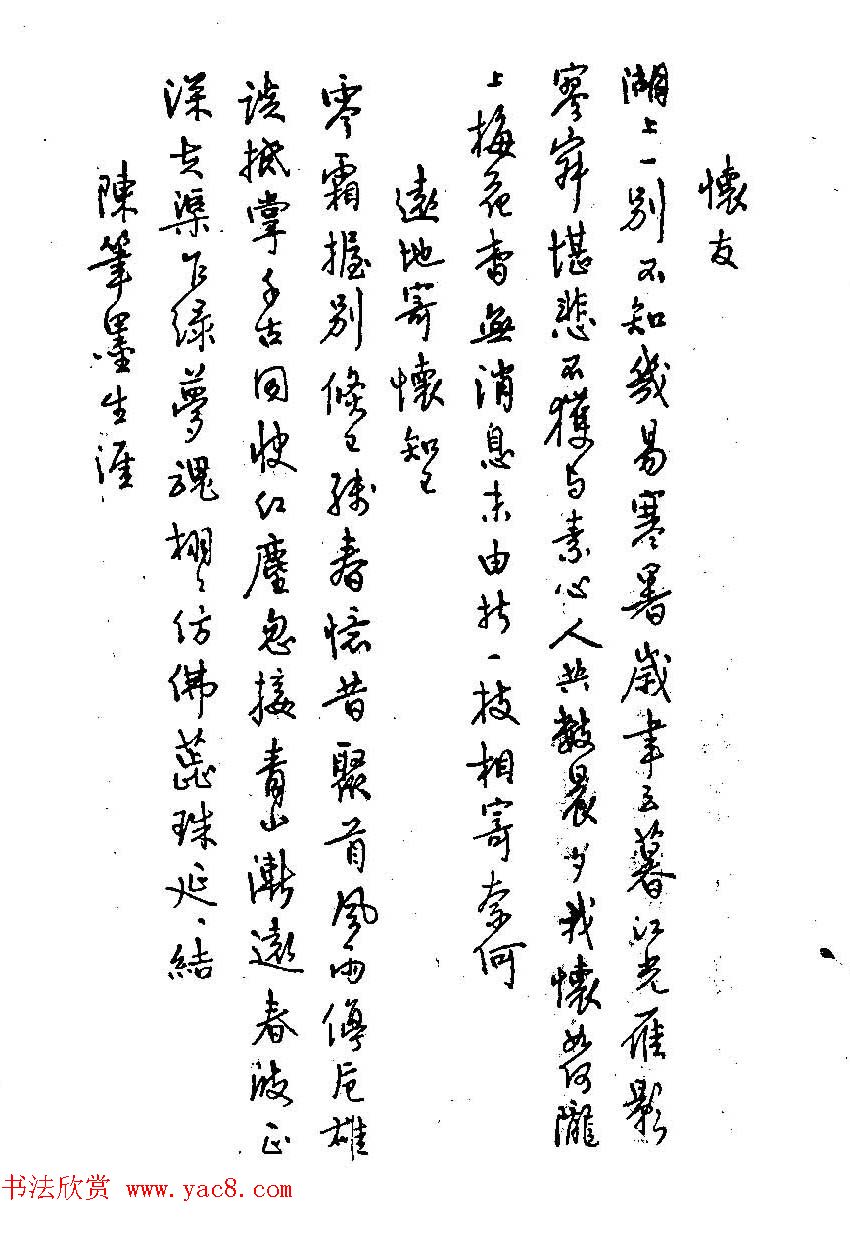 懷友
湖上一別不知幾易寒暑歲聿云暮江光雁影
寥寂堪悲不獲与素心人共數晨夕我懷如何隴
上梅花杳無消息末由折一枝相寄奈何
遠地寄懷知己
零霜握別倏已殘春憶昔聚首風雨停卮雄
談抵掌千古同快紅塵忽接青山漸遠春波正
深去渠乍綠夢魂栩〻仿佛蕊珠延〻結
陳筆墨生涯
书法欣赏 www.yac8.com